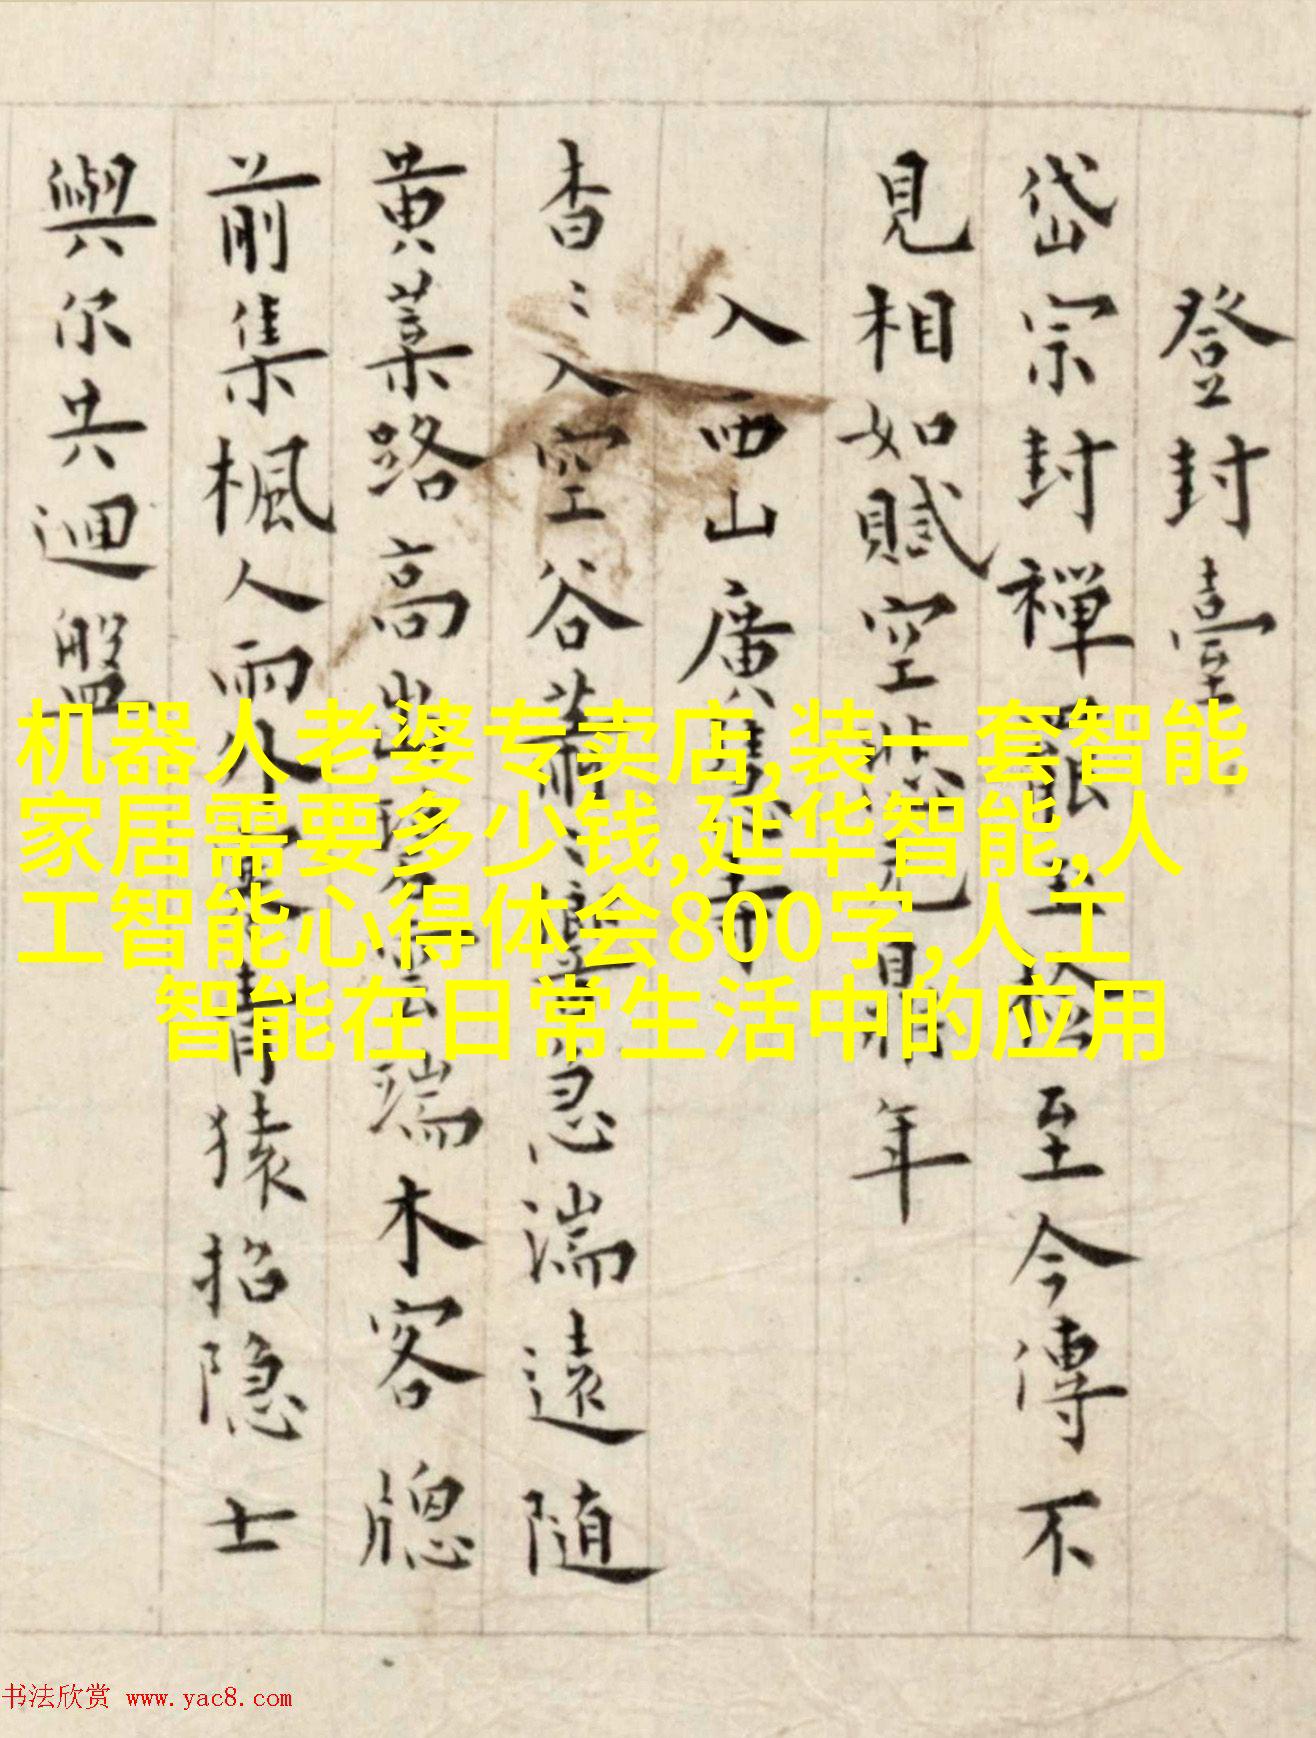 登封臺
岱宗封禪 至今傳不
見相如賦空 年
入西山廣 寺
杳〻入空谷蕭〻 急湍遠隨
黄葉路高出 雲端木客牕
前集楓人雨外 青猿招隐士
與尔共迴盤
机器人老婆专卖店,装一套智能
家居需要多少钱,延华智能,人
工智能心得体会800字,人工
智能在日常生活中的应用
书法欣赏 www.yac8.com